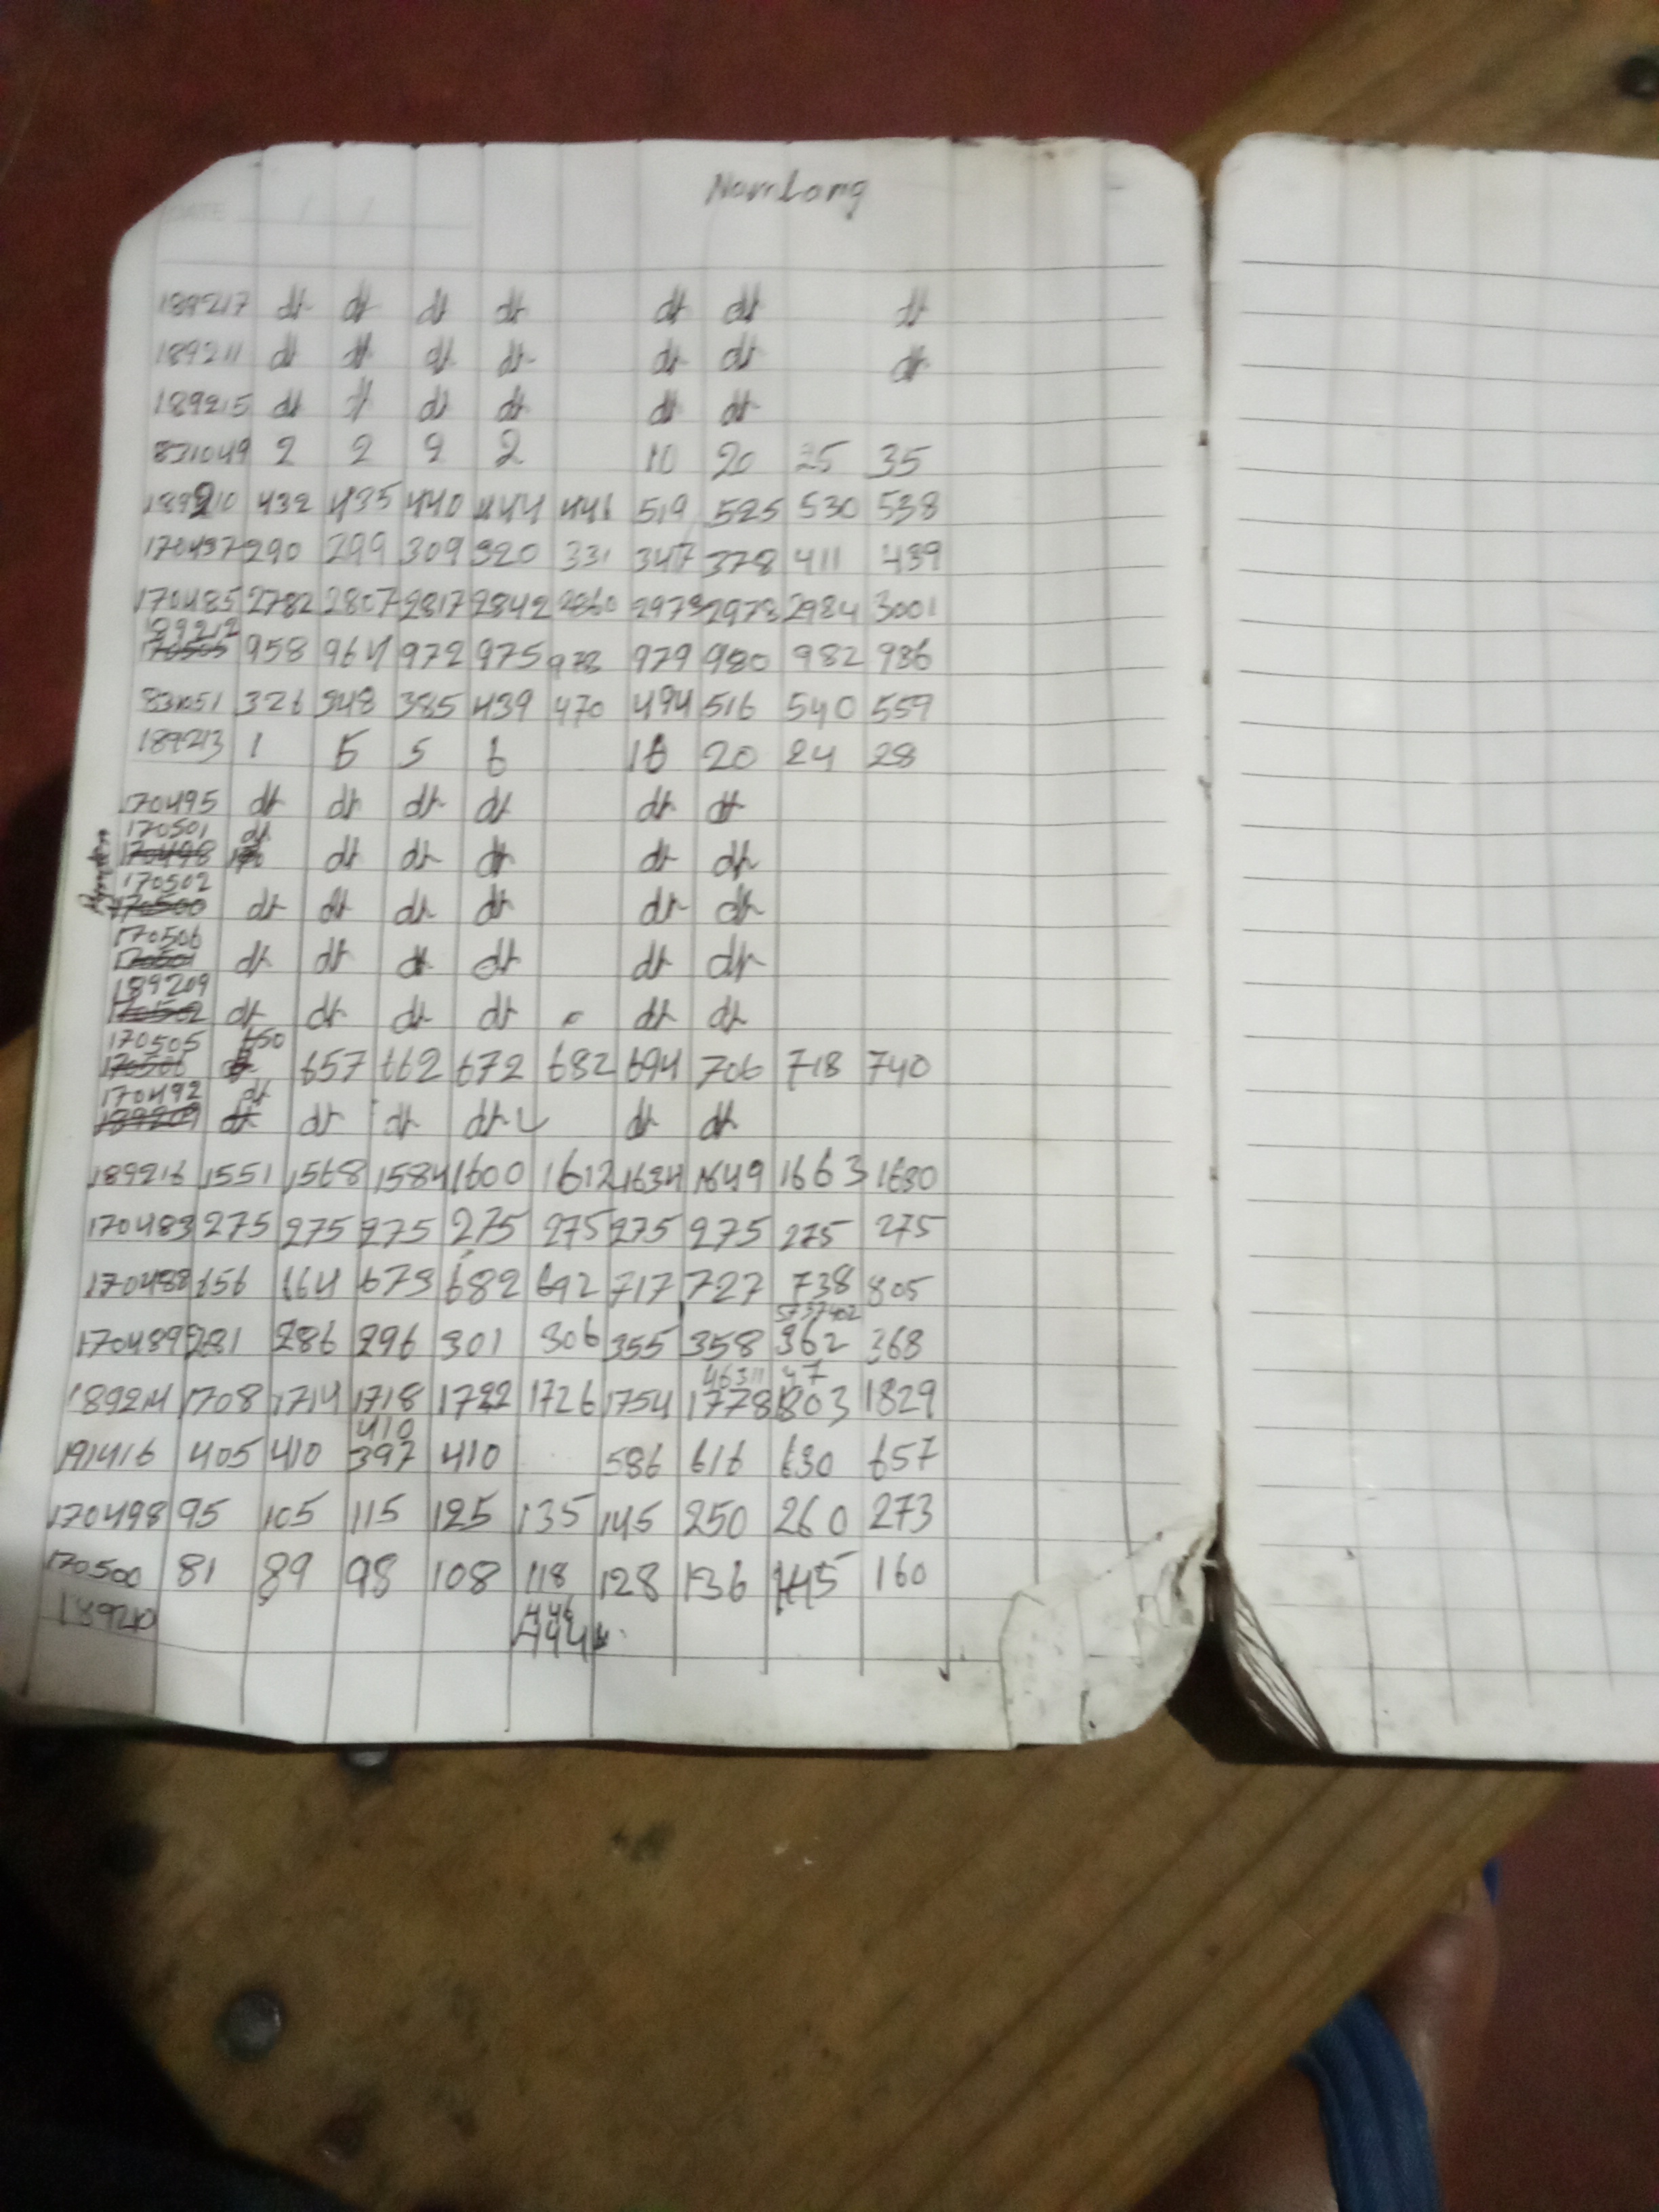 DATE / /
NamLang
189217 dt dt dt dt dt dt dt
189211 dt dt dt dt dt dt dt
189215 dt dt dt dt dt dt
831049 2 2 2 2 10 20 25 35
189210 432 435 440 444 446 519 525 530 538
170497 290 299 309 320 331 347 378 411 439
170485 2782 2807 2817 2842 2860 2973 2978 2984 3001
189212
170505 958 964 972 975 978 979 980 982 986
831051 326 348 385 439 470 494 516 540 559
189213 1 5 5 6 16 20 24 28
170495 dt dt dt dt dt dt
170501 dt
170498 dt dt dt dt dt
170502
170500 dt dt dt dt dt dt
170506
170501 dt dt dt dt dt dt
189209
170502 dt dt dt dt dt dt
170505 650
170506 657 662 672 682 694 706 718 740
170492 dt
189209 dt dt dt dt dt dt
189216 1551 1568 1584 1600 1612 1634 1649 1663 1680
170483 275 275 275 275 275 275 275 275 275
170488 656 664 673 682 692 717 727 738 805
5737402
170489 281 286 296 301 306 355 358 362 368
46311 47
189214 1708 1714 1718 1722 1726 1754 1778 1803 1829
410
191416 405 410 397 410 586 616 630 657
170498 95 105 115 125 135 145 250 260 273
170500 81 89 98 108 118 128 136 145 160
189210 446
444